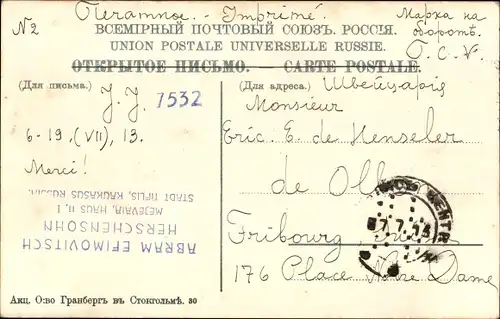 N2 Печатное - Imprimé. Марка на
оборотѣ.
T.C.V.
ВСЕМІРНЫЙ ПОЧТОВЫЙ СОЮЗЪ. РОССІЯ.
UNION POSTALE UNIVERSELLE RUSSIE.
ОТКРЫТОЕ ПИСЬМО. — CARTE POSTALE.
(Для письма.)
J. J. 7532
6-19.(VII), 13.
Merci!
ABRAM EFIMOVITSCH
HERSCHENSOHN
MEJEVAIA, HAUS II, I
STADT TIFLIS, KAUKASUS RUSSL.
(Для адреса.) Швейцарія
Monsieur
Eric. E. de Henseler
de
Fribourg, Suisse
176 Place Notre Dame
7.7.13
Акц. О:во Гранбергъ въ Стокгольмѣ. 30